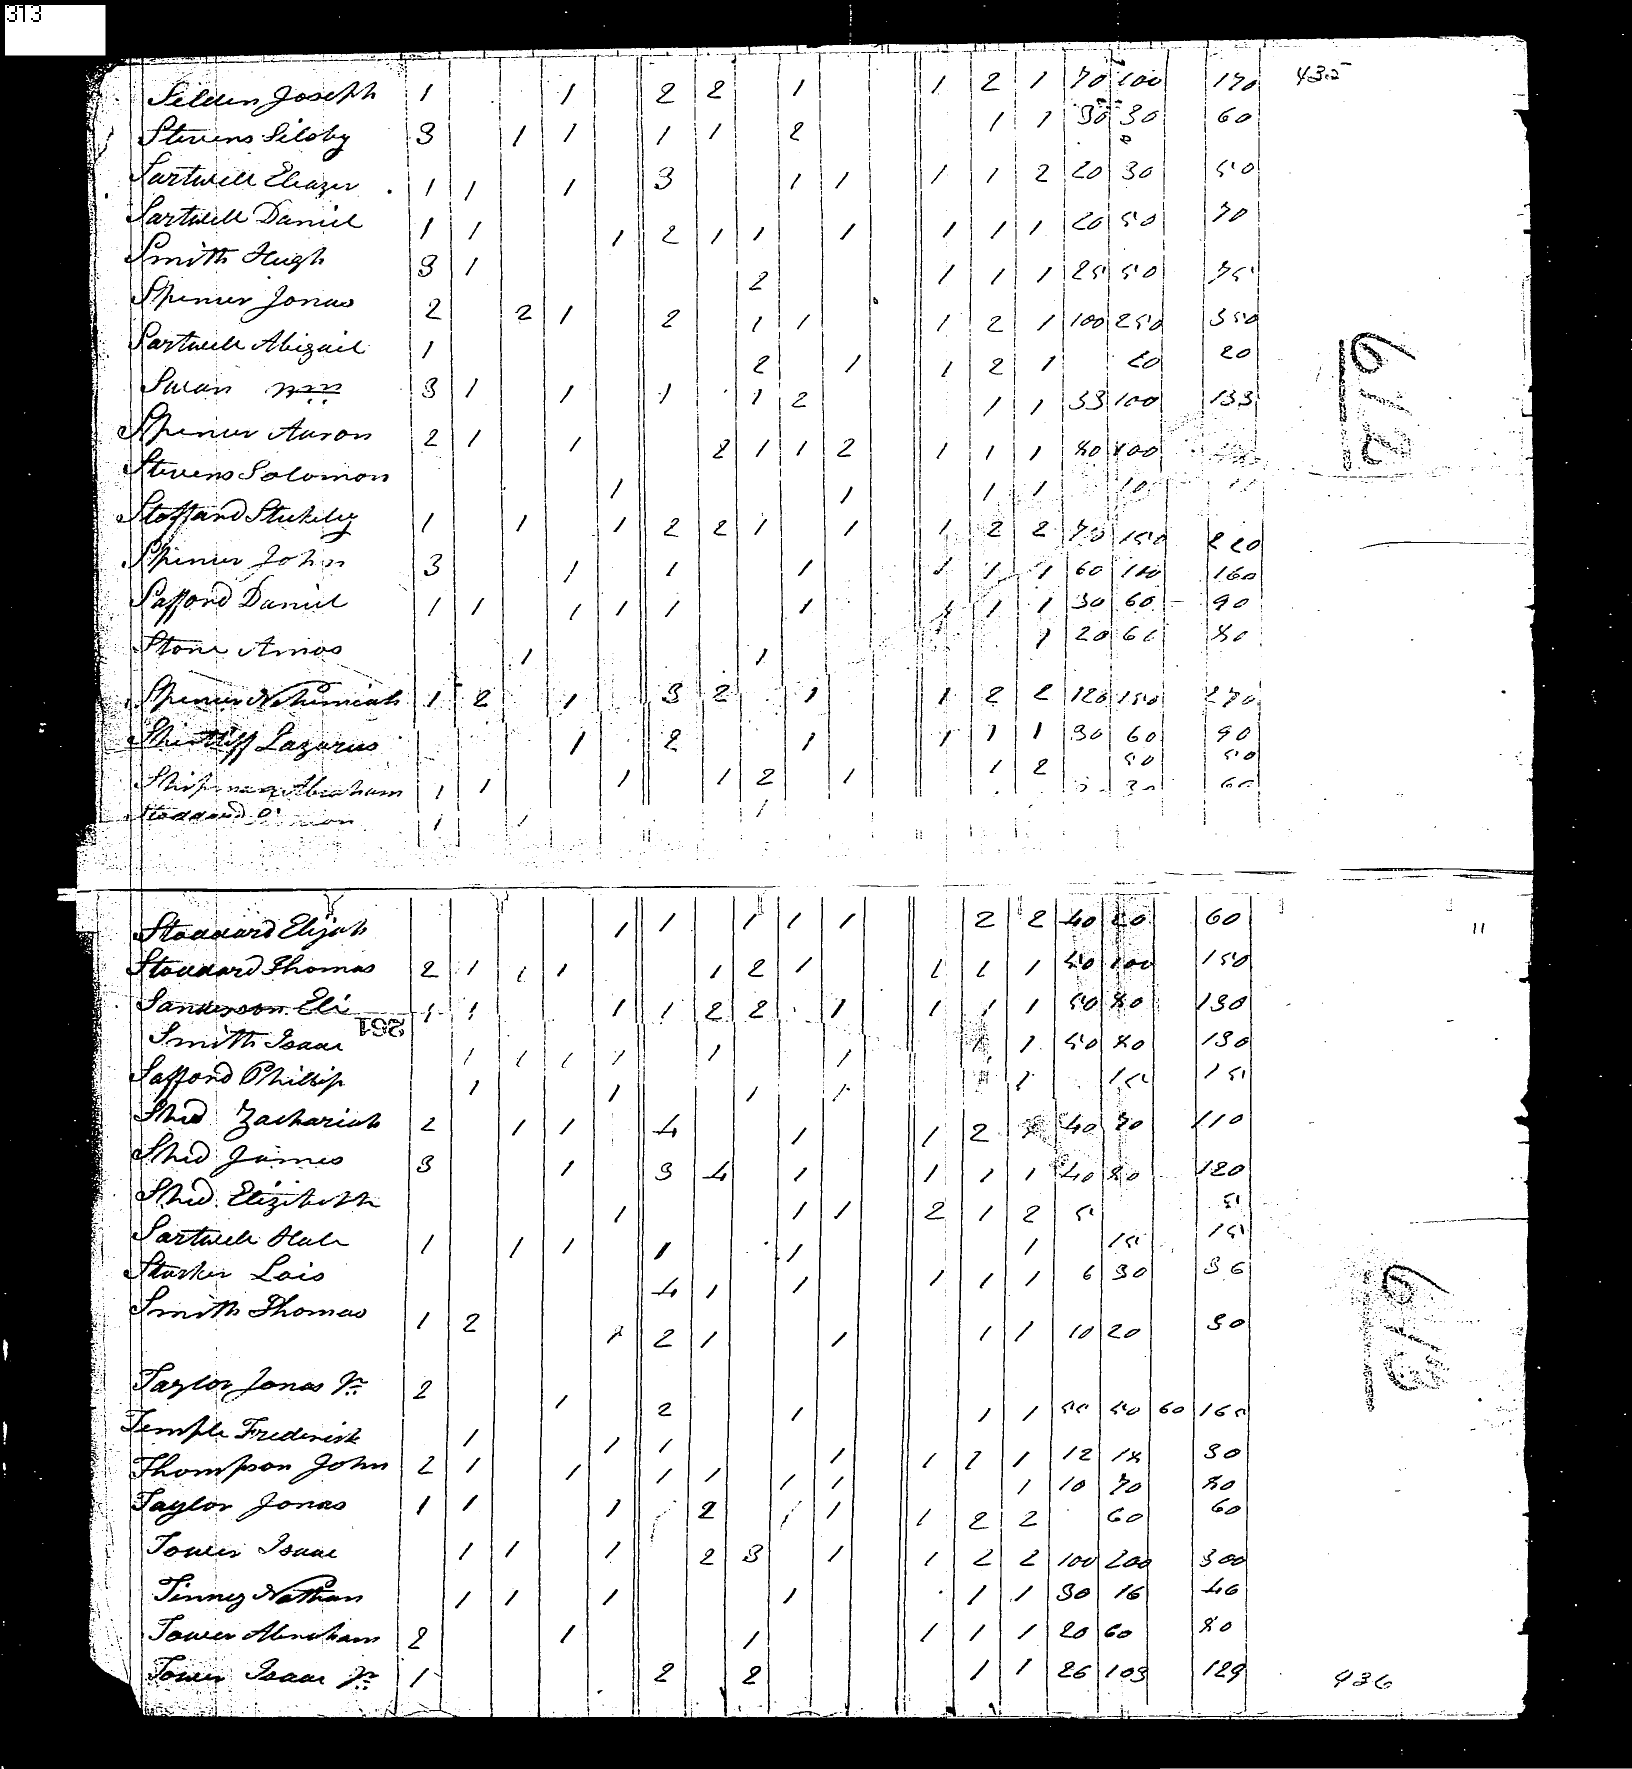 313
Selden Joseph 1 1 2 2 1 1 2 1 70 100 170 435
Stevens Silsby 3 1 1 1 1 2 1 1 30 30 60
Sartwell Eleazer 1 1 1 3 1 1 1 1 2 20 30 50
Sartwell Daniel 1 1 1 2 1 1 1 1 1 1 20 50 70
Smith Hugh 3 1 2 1 1 1 25 50 75
Spencer Jonas 2 2 1 2 1 1 1 2 1 100 250 350
Sartwell Abigail 1 2 1 1 2 1 20 20
Swan Wm 3 1 1 1 1 2 1 1 33 100 133
Spencer Aaron 2 1 1 2 1 1 2 1 1 1 80 100
Stevens Solomon 1 1 1 1 10
Stafford Stukely 1 1 1 2 2 1 1 1 2 2 70 150 220
Spencer John 3 1 1 1 1 1 1 60 100 160
Safford Daniel 1 1 1 1 1 1 1 1 1 30 60 90
Stone Amos 1 1 1 20 60 80
Spencer Nehemiah 1 2 1 3 2 1 1 2 2 120 150 270
Shirtliff Lazarus 1 2 1 1 1 1 30 60 90
Shipman Abraham 1 1 1 1 2 1 1 2 50 50
Stoddard 1 1 1 30 60
Stoddard Elijah 1 1 1 1 1 2 2 40 20 60
Stoddard Thomas 2 1 1 1 1 2 1 1 1 1 50 100 150
Sanderson Eli 1 1 1 1 2 2 1 1 1 1 50 80 130
261
Smith Isaac 1 1 1 1 1 1 1 1 50 80 130
Safford Phillip 1 1 1 1 1 15 15
Shed Zachariah 2 1 1 4 1 1 2 40 70 110
Shed James 3 1 3 4 1 1 1 1 40 80 120
Shed Elizabeth 1 1 1 2 1 2 5 5
Sartwell Hale 1 1 1 1 1 1 15 15
Starker Lois 4 1 1 1 1 1 6 30 36
Smith Thomas 1 2 1 2 1 1 1 1 10 20 30
Taylor Jonas Jr 2 1 2 1 1 1 55 50 60 165
Temple Frederick 1 1 1 1 1 1 1 12 18 30
Thompson John 2 1 1 1 1 1 1 1 10 70 80
Taylor Jonas 1 1 1 1 2 1 1 1 2 2 60 60
Tower Isaac 1 1 1 2 3 1 1 2 2 100 200 300
Tinney Nathan 1 1 1 1 1 1 30 16 46
Tower Abraham 2 1 1 1 1 1 20 60 80
Tower Isaac Jr 1 2 2 1 1 26 103 129 436